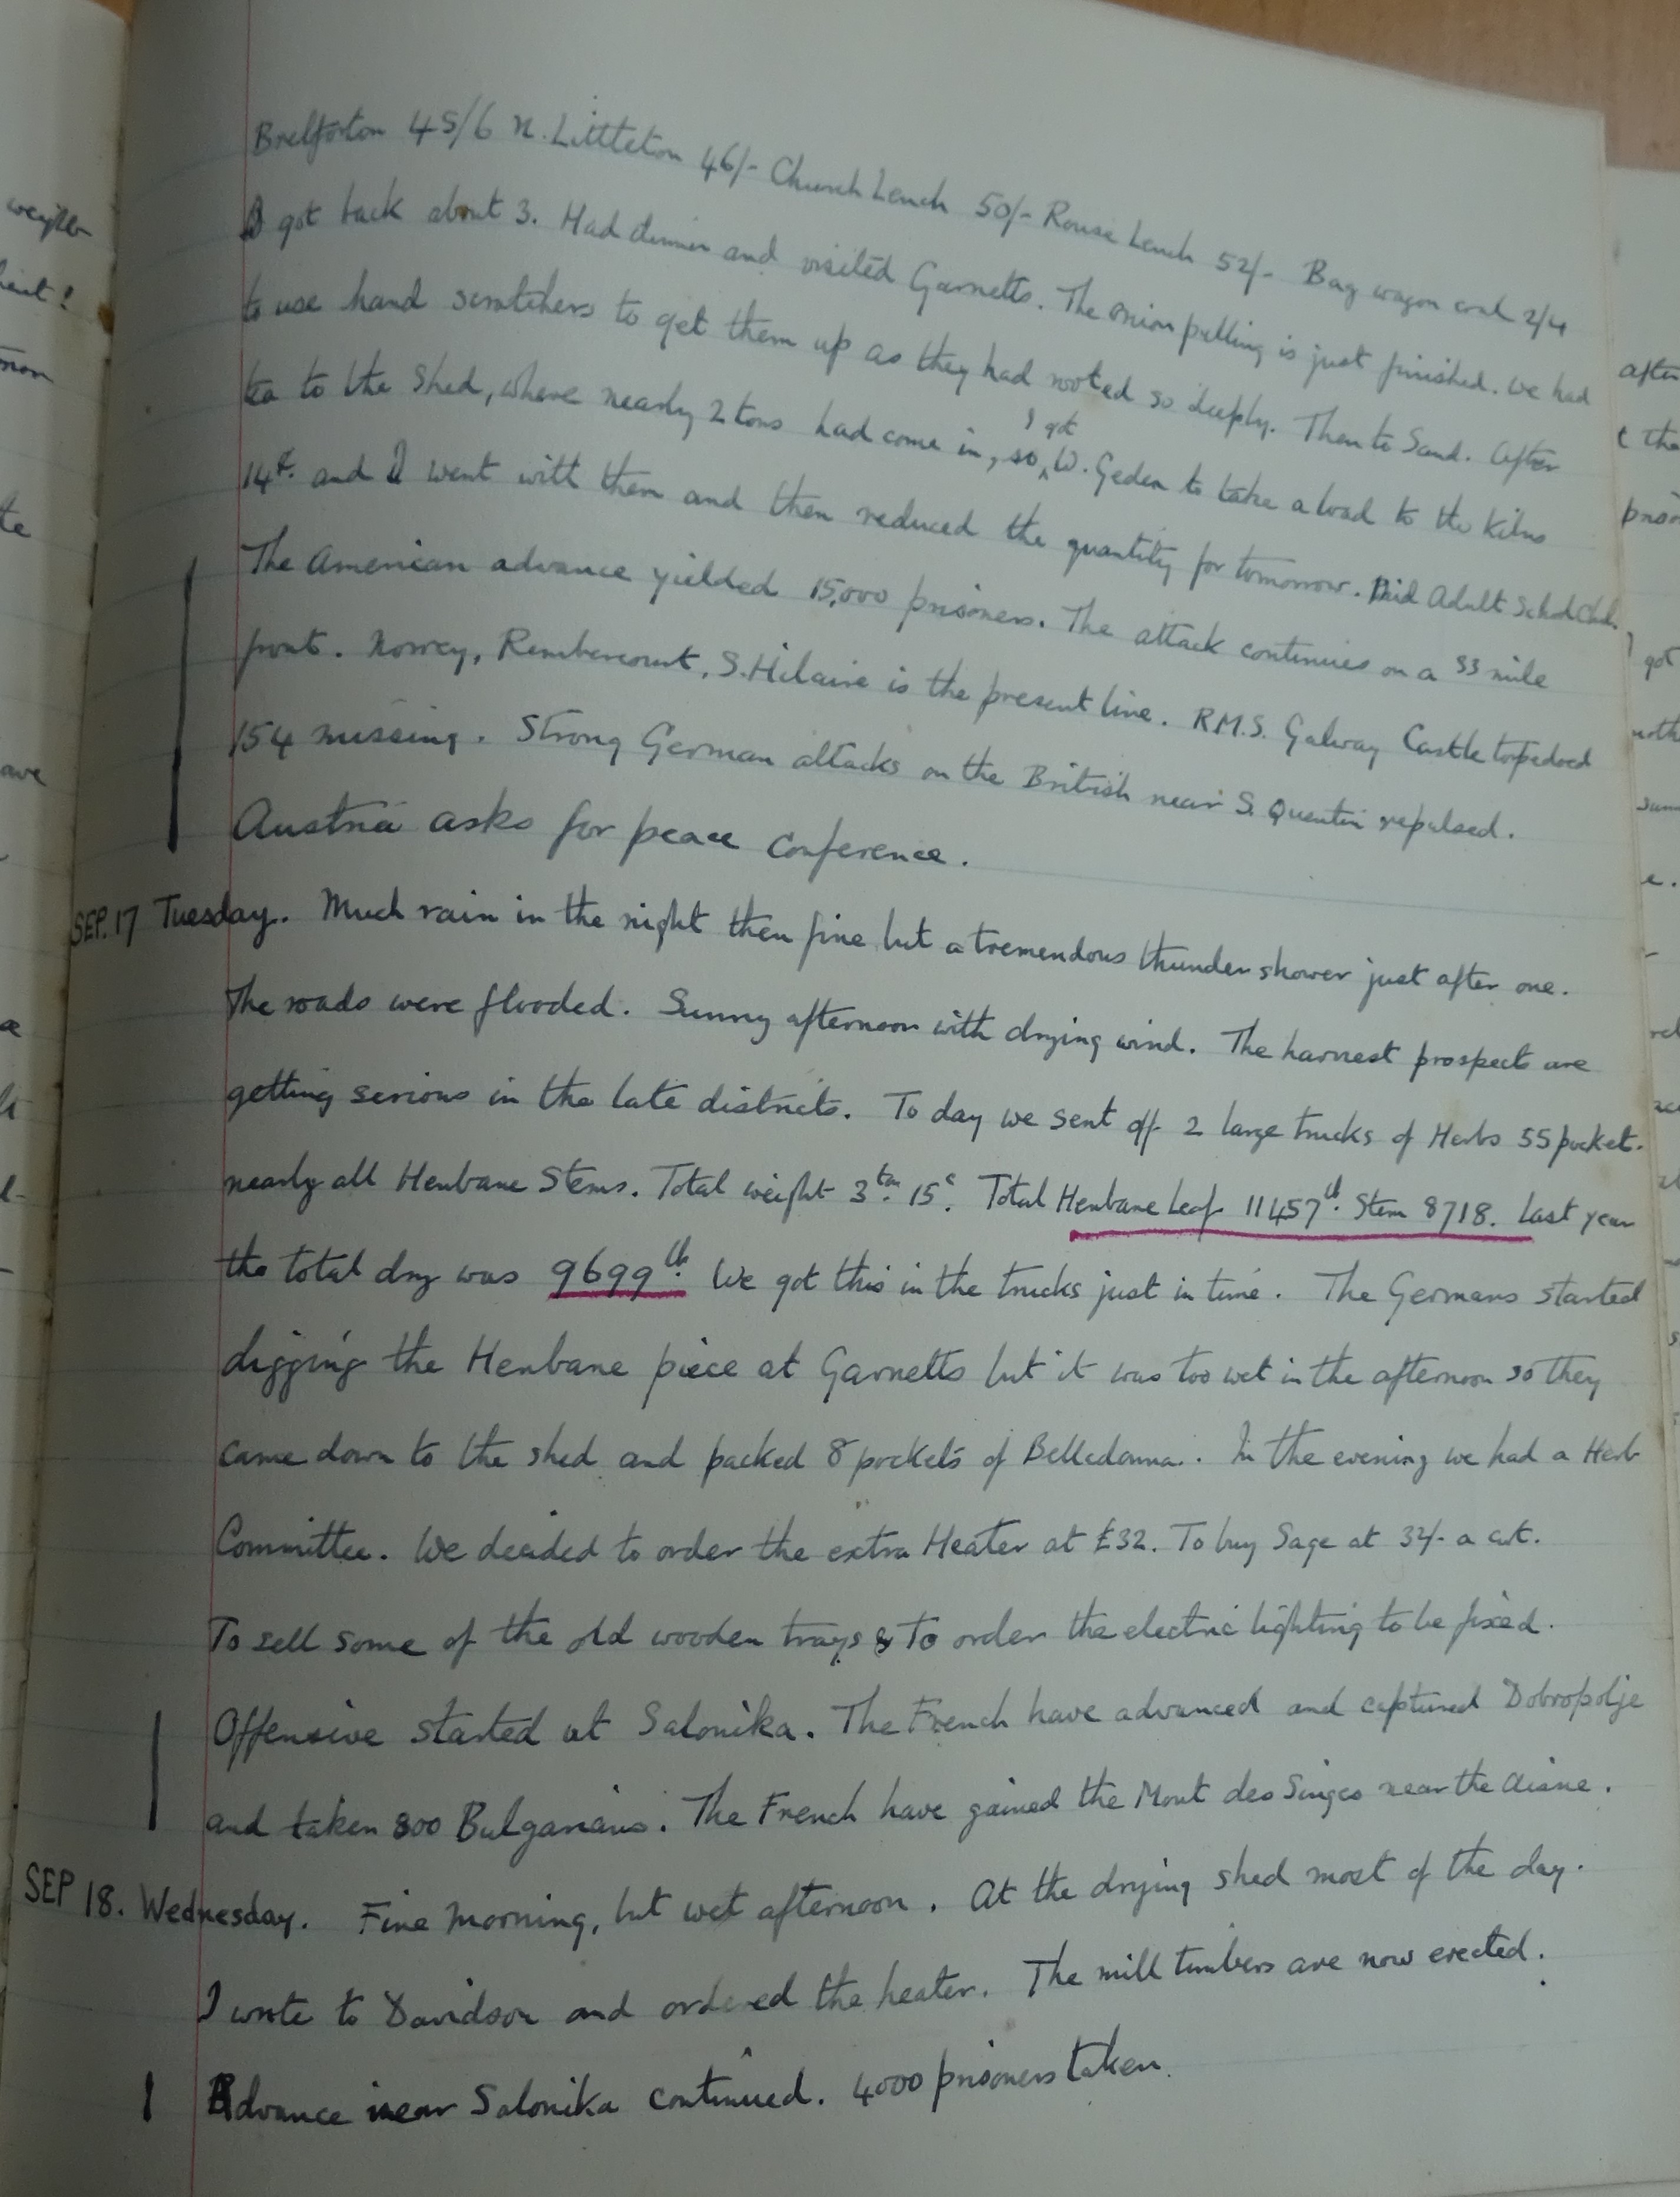 Bretforton 45/6 N. Littleton 46/- Church Lench 50/- Rouse Lench 52/- Bag wagon coal 2/4
I got back about 3. Had dinner and visited Garnetts. The onion pulling is just finished. We had
to use hand scratchers to get them up as they had rooted so deeply. Then to Sand. After
tea to the shed, where nearly 2 tons had come in, so I got W. Geden to take a load to the Kilns
14c. and I went with them and then reduced the quantity for tomorrow. Paid Adult School Club.
The American advance yielded 15,000 prisoners. The attack continues on a 33 mile
front. Norroy, Rembercourt, S. Hilaire is the present line. R.M.S. Galway Castle torpedoed
154 missing. Strong German attacks on the British near S. Quentin repulsed.
Austria asks for peace conference.
SEP. 17 Tuesday. Much rain in the night then fine but a tremendous thunder shower just after one.
The roads were flooded. Sunny afternoon with drying wind. The harvest prospects are
getting serious in the late districts. To day we sent off 2 large trucks of Herbs 55 pocket.
nearly all Henbane Stems. Total weight 3 ton. 15c. Total Henbane Leaf 11457 lb. Stem 8718. Last year
the total dry was 9699 lb. We got this in the trucks just in time. The Germans started
digging the Henbane piece at Garnetts but it was too wet in the afternoon so they
came down to the shed and packed 8 pockets of Belledonna. In the evening we had a Herb
Committee. We decided to order the extra Heater at £32. To buy Sage at 32/- a cwt.
To sell some of the old wooden trays & To order the electric lighting to be fixed.
Offensive started at Salonika. The French have advanced and captured Dobropolje
and taken 800 Bulgarians. The French have gained the Mont des Singes near the Aisne.
SEP 18. Wednesday. Fine Morning, but wet afternoon. At the drying shed most of the day.
I wrote to Davidson and ordered the heater. The mill timbers are now erected.
Advance near Salonika continued. 4000 prisoners taken.